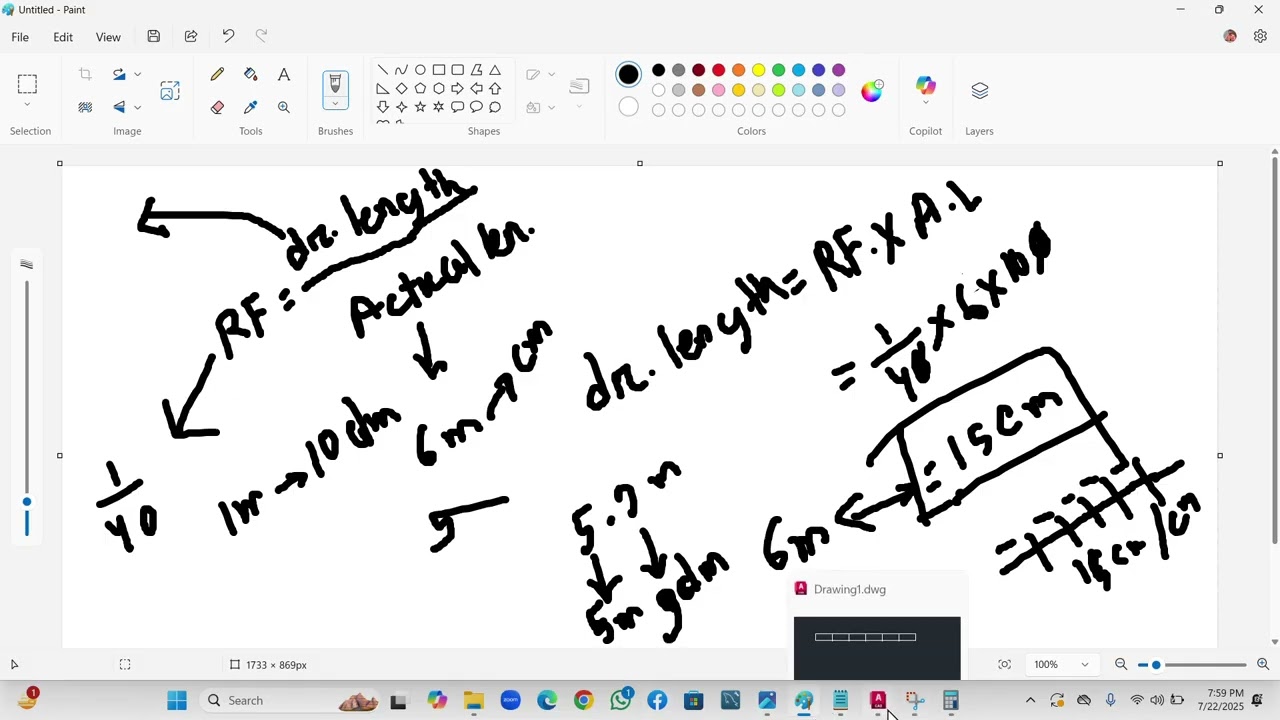 Untitled - Paint
File Edit View
Selection Image Tools Brushes Shapes Colors Copilot Layers
dr. length
RF =
Actual len.
1/40
1m → 10 dm
6m → cm
5
5.9 m
5m 9dm
dr. length = RF. X A.L
= 1/40 X 6 X 100
= 15 cm
6m
15 cm
1 cm
Drawing1.dwg
1733 × 869px
100%
Search
7:59 PM
7/22/2025